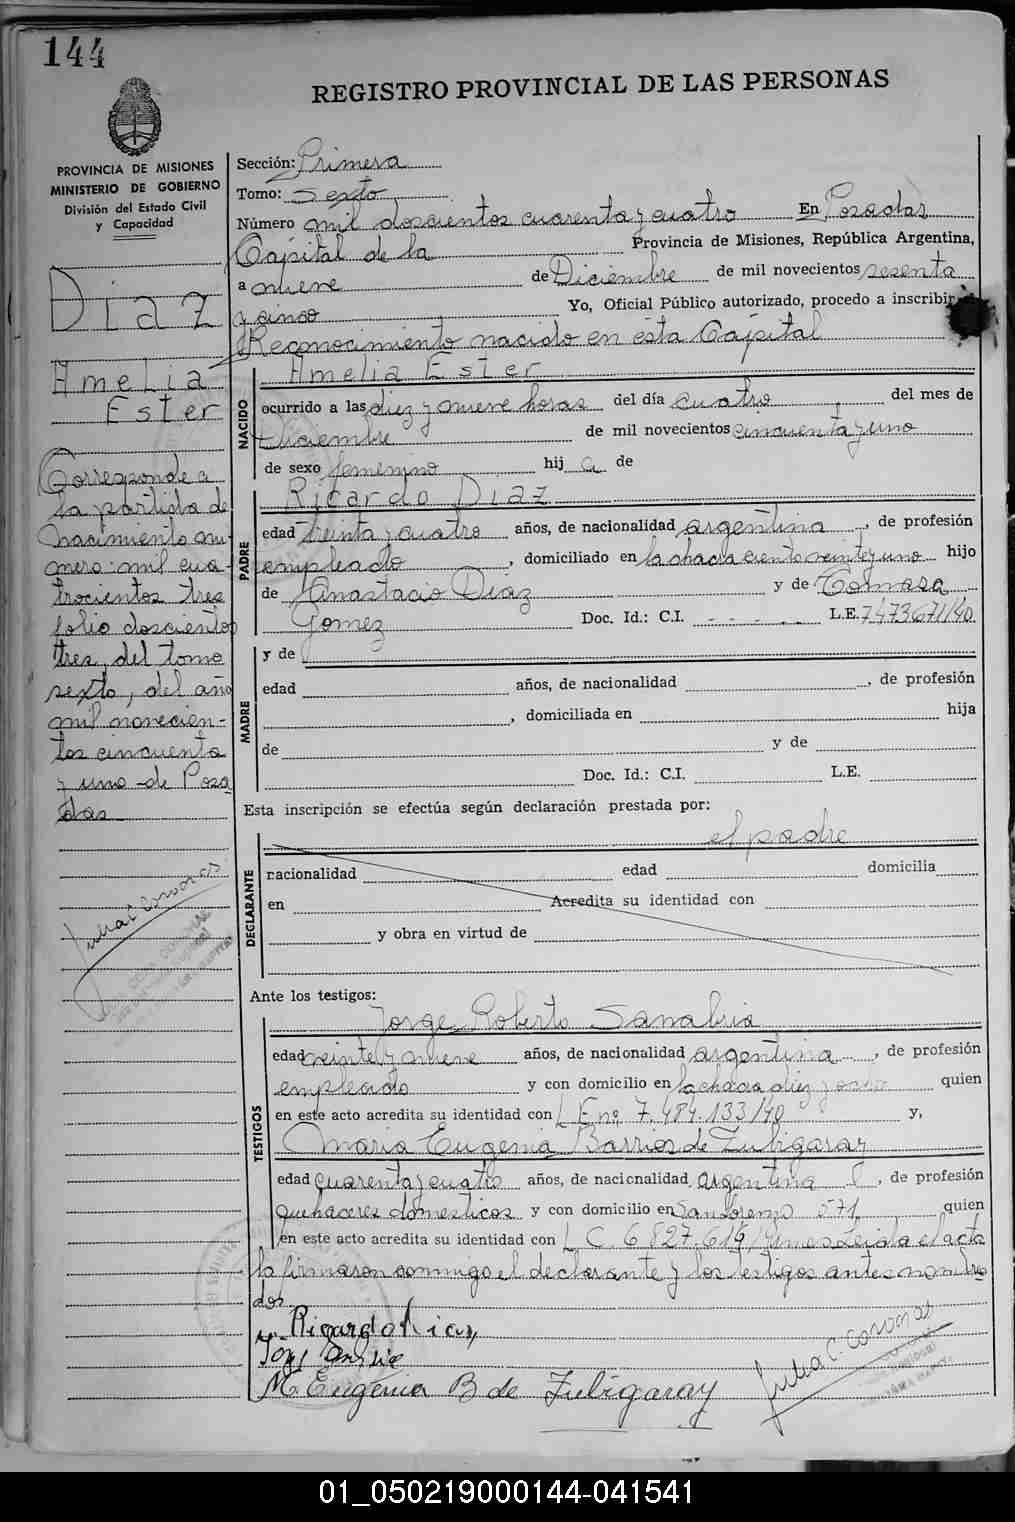 144
REGISTRO PROVINCIAL DE LAS PERSONAS
PROVINCIA DE MISIONES
MINISTERIO DE GOBIERNO
División del Estado Civil
y Capacidad
Diaz
Amelia
Ester
Corresponde a
la partida de
nacimiento nu-
mero: mil cua-
trocientos tres
folio doscientos
tres, del tomo
sexto, del año
mil novecien-
tos cincuenta
y uno -de Posa
das
Julia C Coronas
Sección: Primera
Tomo: Sexto
Número mil doscientos cuarenta y cuatro En Posadas
Capital de la Provincia de Misiones, República Argentina,
a nueve de Diciembre de mil novecientos sesenta
y cinco Yo, Oficial Público autorizado, procedo a inscribir
Reconocimiento nacido en esta Capital
NACIDO
Amelia Ester
ocurrido a las diez y nueve horas del día cuatro del mes de
Diciembre de mil novecientos cincuenta y uno
de sexo femenino hij a de
PADRE
Ricardo Diaz
edad treinta y cuatro años, de nacionalidad argentina, de profesión
empleado, domiciliado en la chacra ciento veinte y uno hijo
de Anastacio Diaz y de Tomasa
Gomez Doc. Id.: C.I. - - - - - L.E. 7473671/40
MADRE
y de
edad años, de nacionalidad , de profesión
, domiciliada en hija
de y de
Doc. Id.: C.I. L.E.
Esta inscripción se efectúa según declaración prestada por:
DECLARANTE
el padre
racionalidad edad domicilia
en Acredita su identidad con
y obra en virtud de
Ante los testigos:
TESTIGOS
Jorge Roberto Sanabria
edad veinte y nueve años, de nacionalidad argentina, de profesión
empleado y con domicilio en la chacra diez y ocho quien
en este acto acredita su identidad con L E nº 7.484.133/40 y,
Maria Eugenia Barrios de Zubigaray
edad cuarenta y cuatro años, de nacionalidad argentina, de profesión
quehaceres domesticos y con domicilio en San Lorenzo 571 quien
en este acto acredita su identidad con L C. 6.827.615/ Leida el acta
la firmaron conmigo el declarante y los testigos antes nombra
dos
Ricardo Diaz
M. Eugenia B de Zubigaray
Julia C. Coronas
01_050219000144-041541